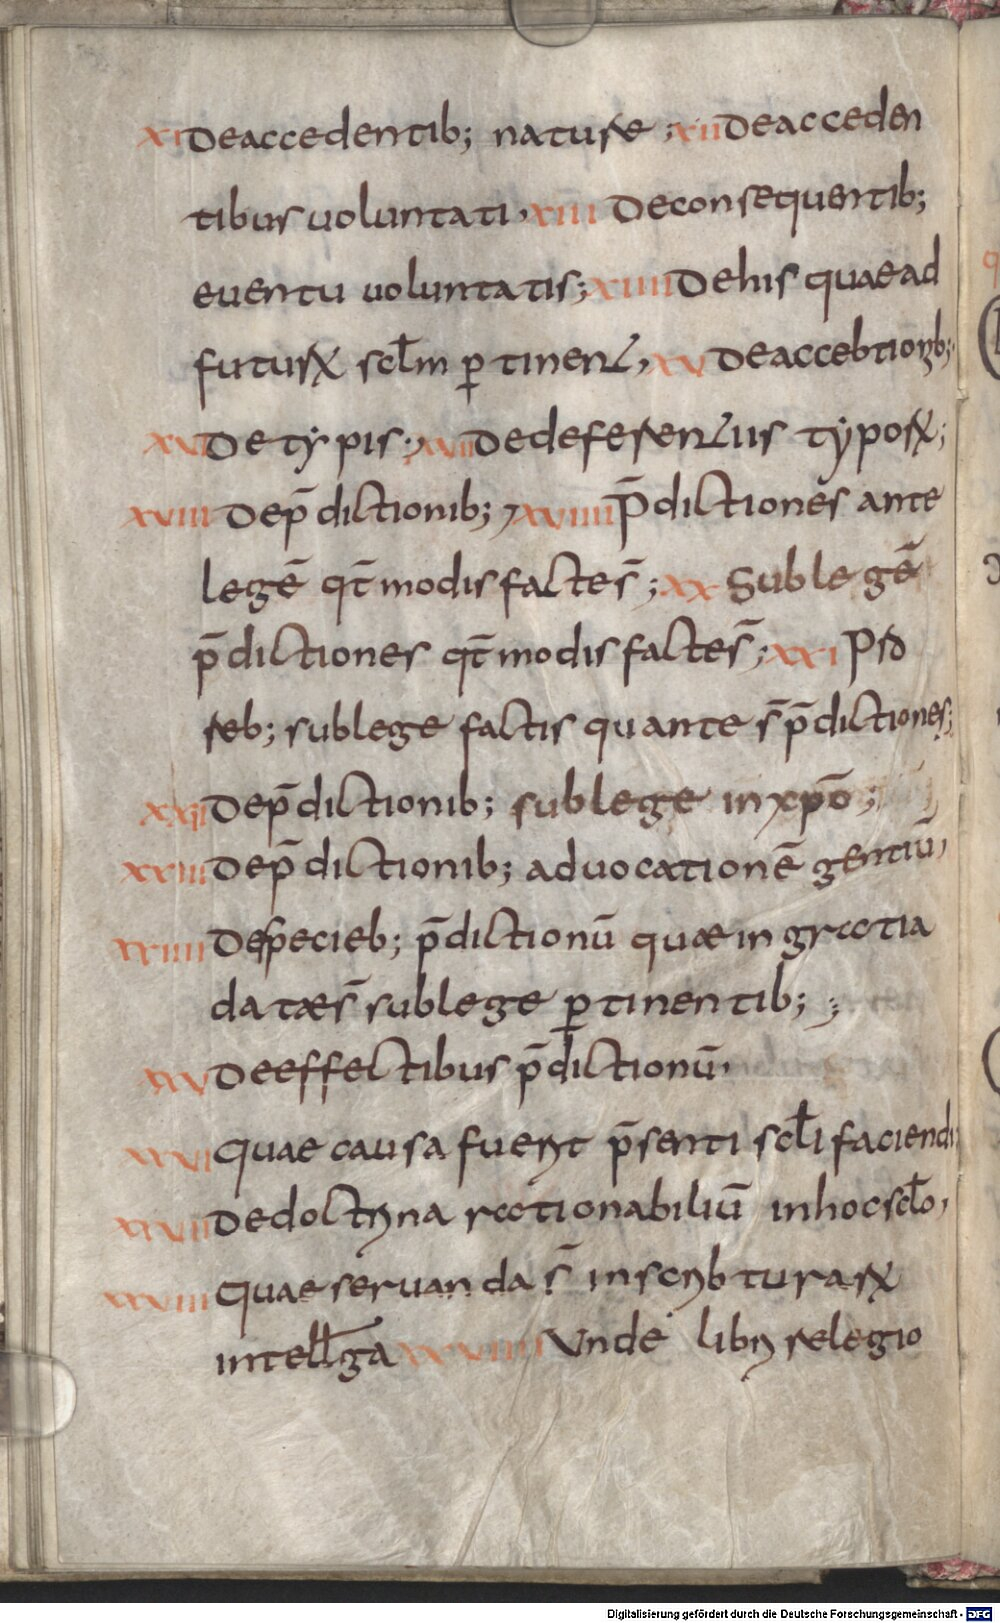 XI Deaccedentib; nature; XII Deacceden
tibus uoluntati, XIII Deconsequentib;
euentu uoluntatis; XIIII Dehis quaead
futurꝝ scl̄m ꝑtinent, XV Deaccebtionib;
XVI De typis; XVII Dedeferentiis typorꝝ;
XVIII Dep̄dictionib; XVIIII P̄dictiones ante
legē qt̄modis factes̄; XX Sub legē
p̄dictiones qt̄modis factes̄; XXI Pro
reb; sublege factis quante s̄ p̄dictiones;
XXII Dep̄dictionib; sublege in xpō;
XXIII Dep̄dictionib; aduocationē gentiū,
XXIIII Despecieb; p̄dictionū quæ in gratia
datæs̄ sublege ꝑtinentib;
XXV Deeffectibus p̄dictionū,
XXVI Quae causa fuerit p̄senti scl̄i faciendi
XXVII Dedoctrina rationabiliū inhocscl̄o,
XXVIII Quae seruanda s̄ inscribturarꝝ
intell̄ga XXVIIII Unde libri relegio
Digitalisierung gefördert durch die Deutsche Forschungsgemeinschaft - DFG